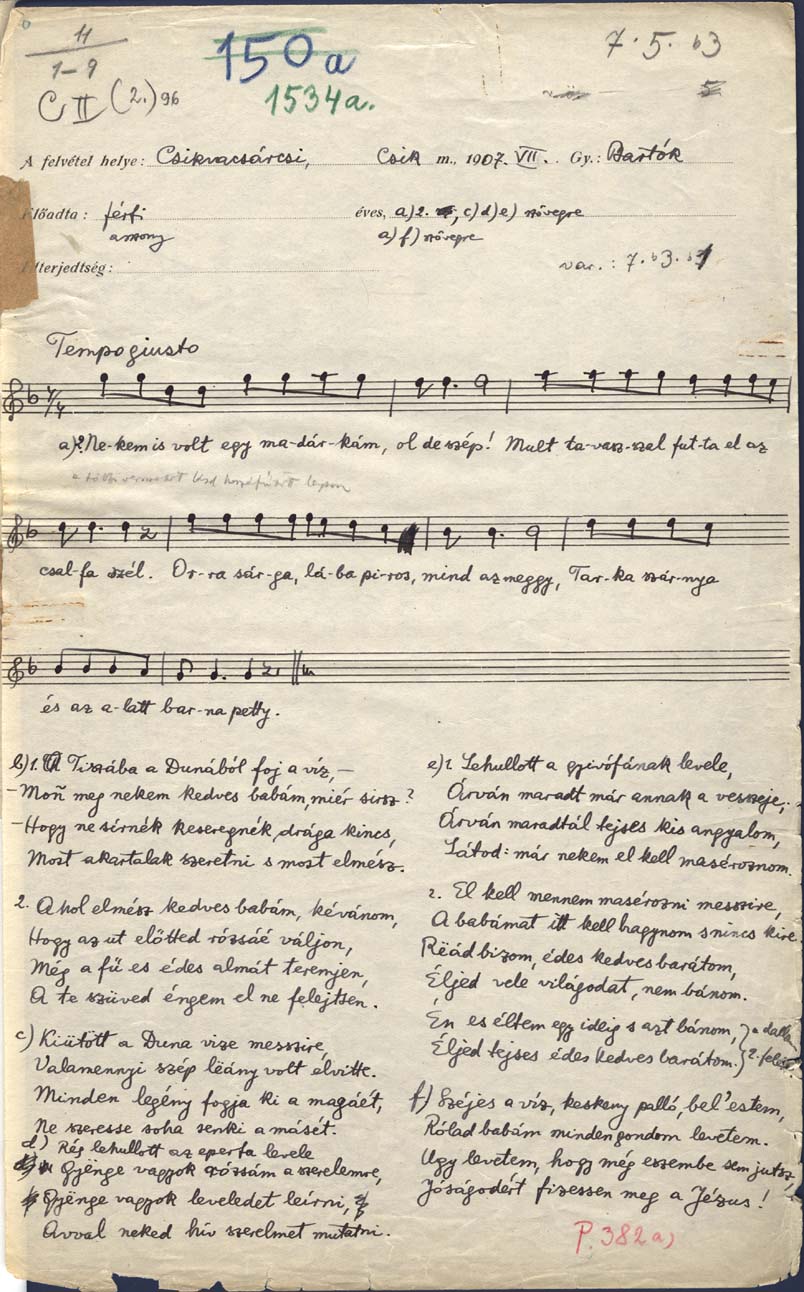 11
1–9
150a
7. 5. b3
C II (2.) 96
1534a.
5
A felvétel helye: Csikvacsárcsi, Csik m., 1907. VII. Gy.: Bartók
Előadta: férfi éves, a) 2. c) d) e) szövegre
asszony a) f) szövegre
Elterjedtség: var.: 7. b3. b3
Tempo giusto
a) 2. Ne-kem is volt egy ma-dár-kám, ol de szép! Mult ta-vasz-szal fut-ta el az
a többi
csal-fa szél. Or-ra sár-ga, lá-ba pi-ros, mind az meggy, Tar-ka szár-nya
és az a-latt bar-na petty.
b) 1. A Tiszába a Dunából foj a víz, –
– Moñ meg nekem kedves babám, miér sirsz?
– Hogy ne sírnék keseregnék, drága kincs,
Most akartalak szeretni s most elmész.
2. Ahol elmész kedves babám, kévánom,
Hogy az ut előtted rózsáé váljon,
Még a fű es édes almát teremjen,
A te szüved éngem el ne felejtsen.
c) Kiütött a Duna vize messzire,
Valamennyi szép lëány volt elvitte.
Minden legény fogja ki a magáét,
Ne szeresse soha senki a másét.
d) Rég lehullott az eperfa levele
Gjënge vagyok rózsám a szerelemre,
Gjënge vagyok leveledet leírni,
Avval neked hív szerelmet mutatni.
e) 1. Lehullott a gzivófának levele,
Árván maradt már annak a vesszeje,
Árván maradtál tejses kis angyalom,
Látod: már nekem el kell masëroznom.
2. El kell mennem masérozni messzire,
A babámat itt kell hagynom s nincs kire.
Rëád bizom, édes kedves barátom,
Éljed vele világodat, nem bánom.
Én es éltem egy ideig s azt bánom, } a dallam
Éljed tejses édes kedves barátom. } 2. fele
f) Széjes a víz, keskeny palló, bel'estem,
Rólad babám minden gondom levetem.
Ugy levetem, hogy még eszembe sem jutsz,
Jóságodért fizessen meg a Jézus!
P. 382 a)